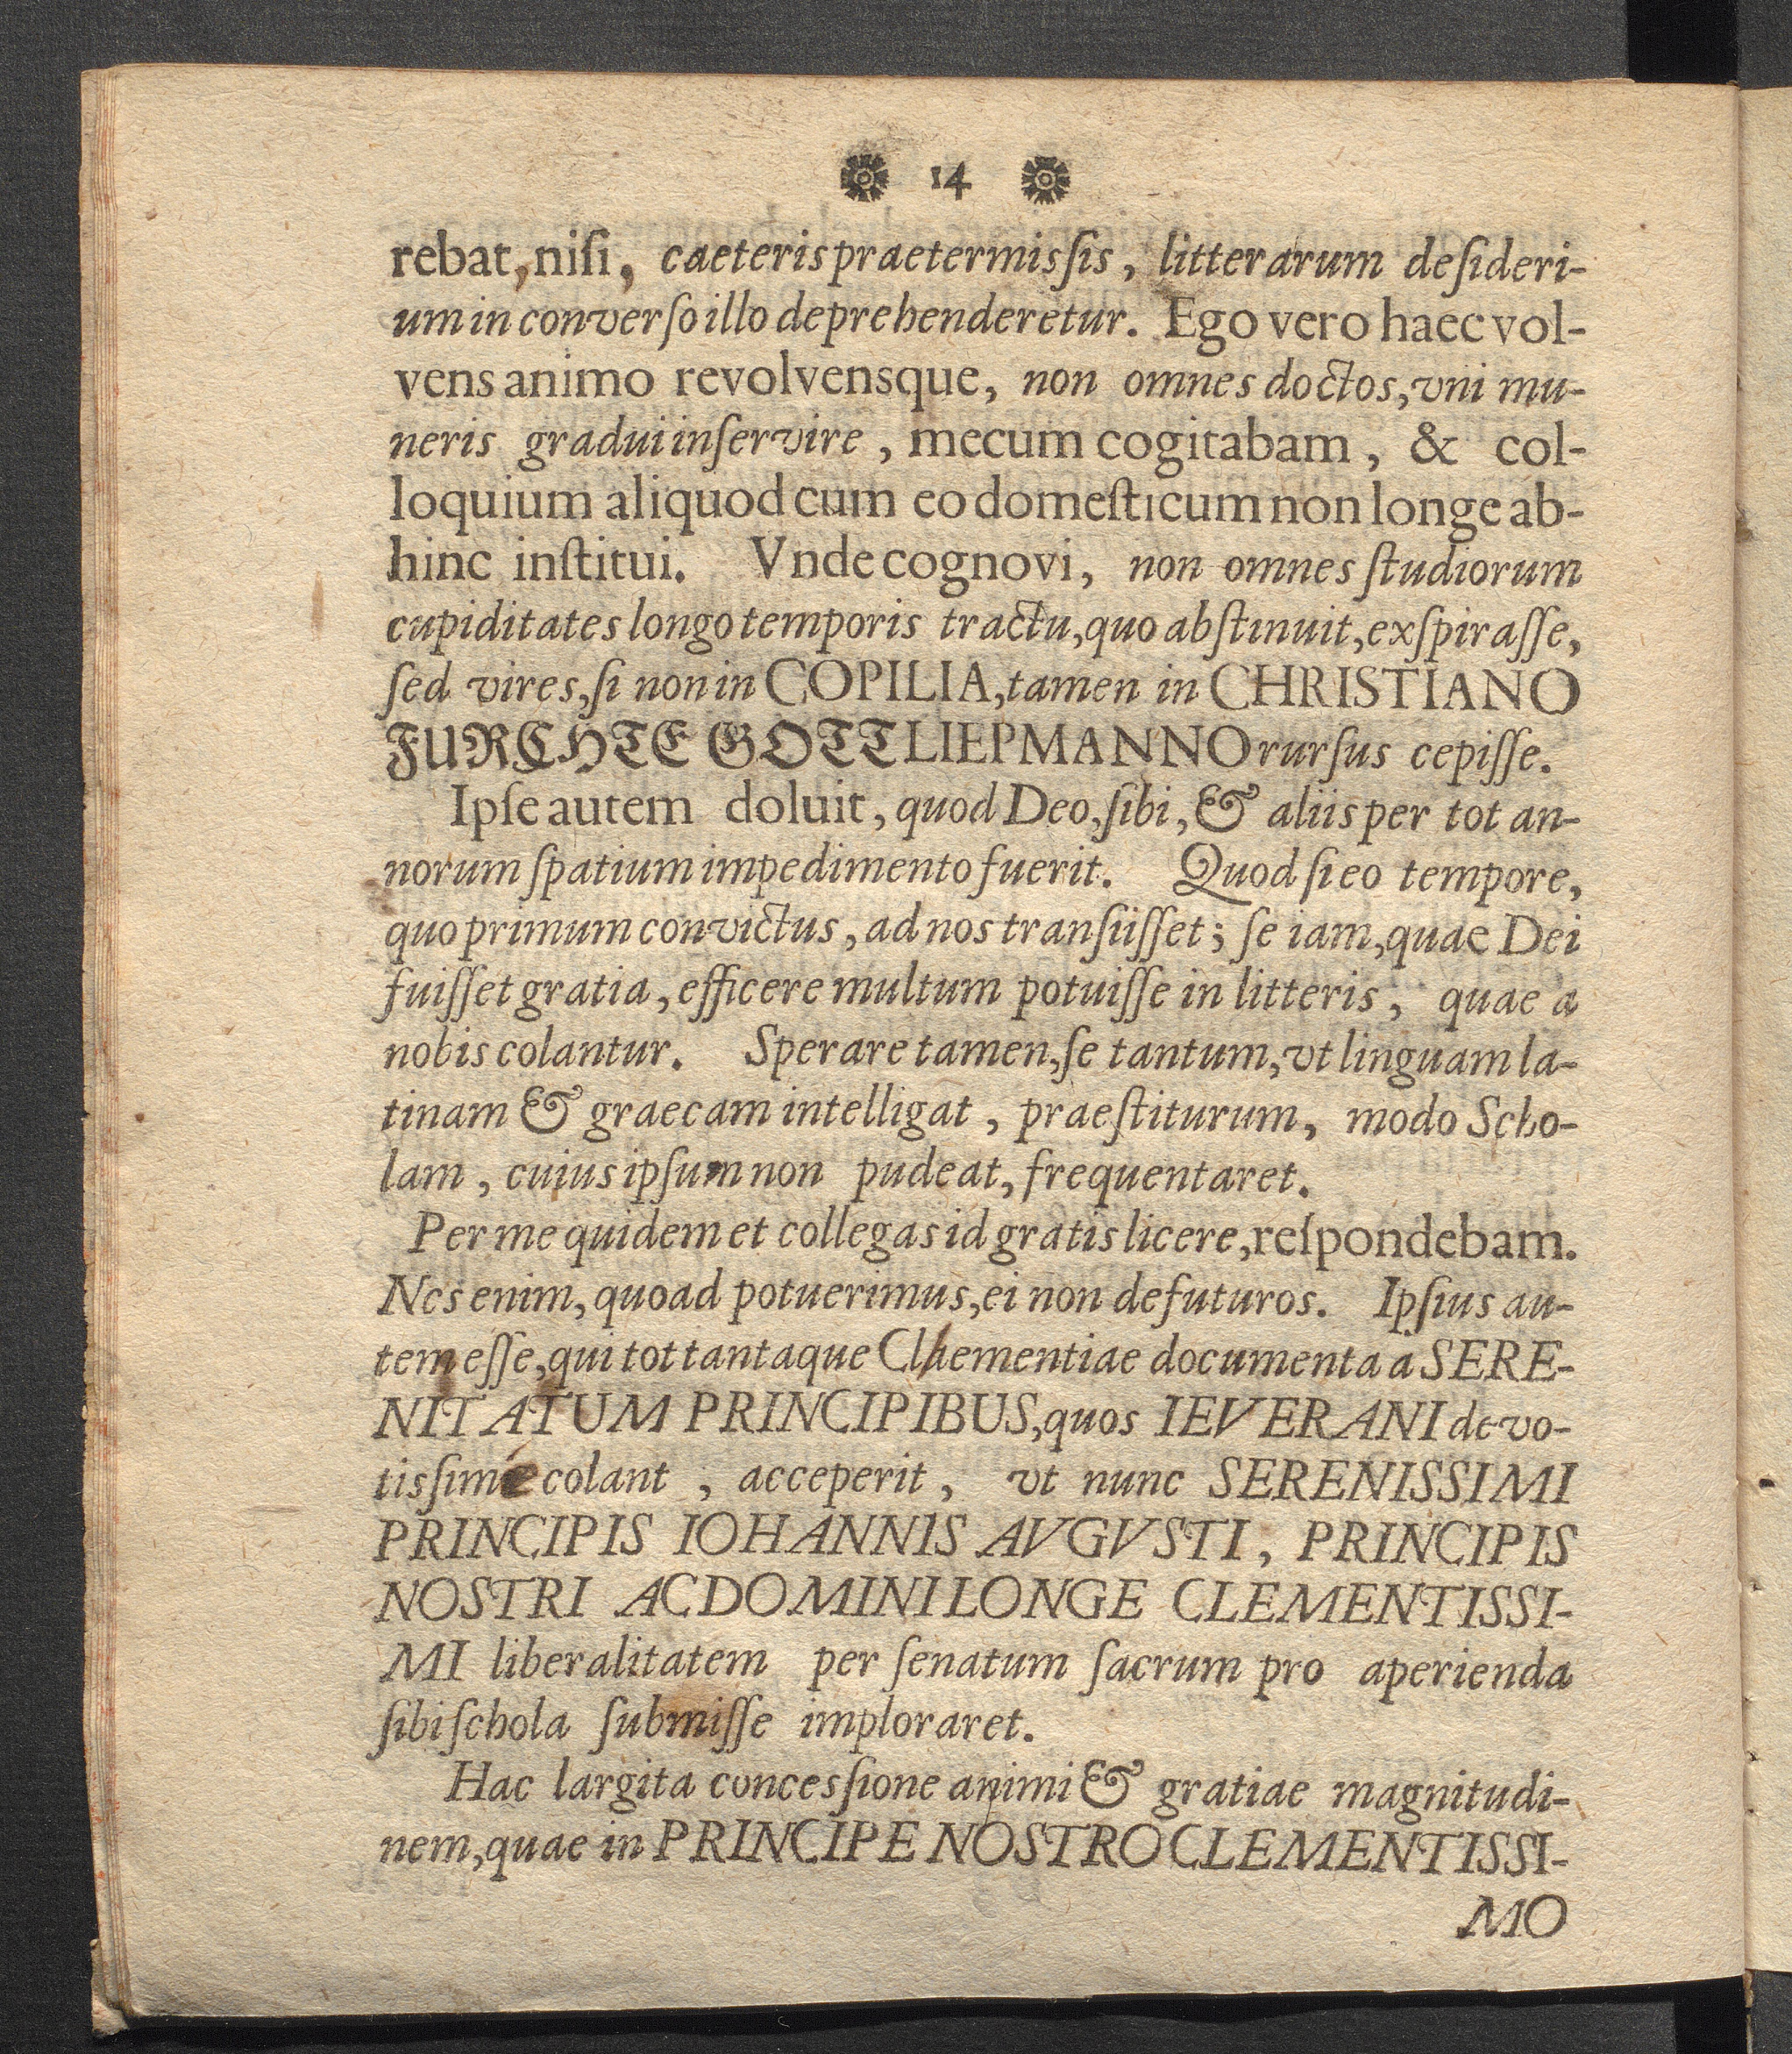 14
rebat, niſi, caeteris praetermisſis, litterarum deſideri-
um in converſo illo deprehenderetur. Ego vero haec vol-
vens animo revolvensque, non omnes doctos, vni mu-
neris gradui inſervire, mecum cogitabam, & col-
loquium aliquod cum eo domeſticum non longe ab-
hinc inſtitui. Vnde cognovi, non omnes ſtudiorum
cupiditates longo temporis tractu, quo abſtinuit, exſpiraſſe,
ſed vires, ſi non in COPILIA, tamen in CHRISTIANO
FURCHTE GOTT LIEPMANNO rurſus cepiſſe.
Ipſe autem doluit, quod Deo, ſibi, & aliis per tot an-
norum ſpatium impedimento fuerit. Quod ſi eo tempore,
quo primum convictus, ad nos tranſiiſſet; ſe iam, quae Dei
fuiſſet gratia, efficere multum potuiſſe in litteris, quae a
nobis colantur. Sperare tamen, ſe tantum, vt linguam la-
tinam & graecam intelligat, praeſtiturum, modo Scho-
lam, cuius ipſum non pudeat, frequentaret.
Per me quidem et collegas id gratis licere, reſpondebam.
Nos enim, quoad potuerimus, ei non defuturos. Ipſius au-
tem eſſe, qui tot tantaque Clhementiae documenta a SERE-
NITATUM PRINCIPIBUS, quos IEVERANI devo-
tisſime colant, acceperit, vt nunc SERENISSIMI
PRINCIPIS IOHANNIS AVGVSTI, PRINCIPIS
NOSTRI AC DOMINI LONGE CLEMENTISSI-
MI liberalitatem per ſenatum ſacrum pro aperienda
ſibi ſchola ſubmiſſe imploraret.
Hac largita concesſione animi & gratiae magnitudi-
nem, quae in PRINCIPE NOSTRO CLEMENTISSI-
MO